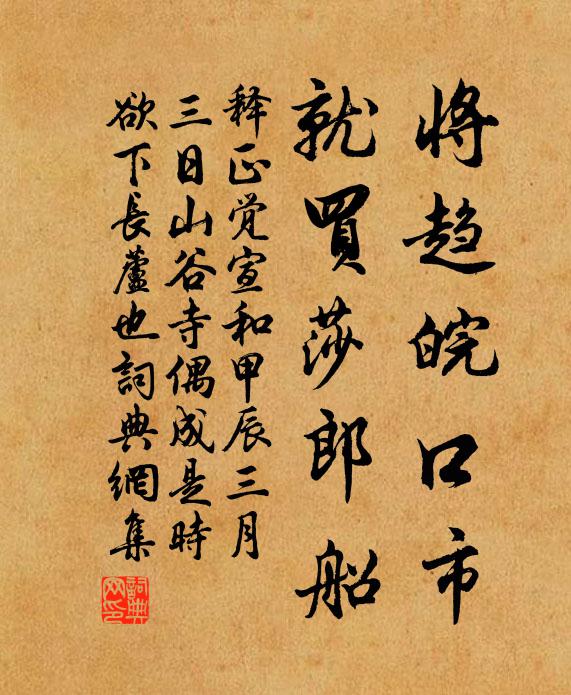 将趋皖口市
就買莎郎船
释正觉宣和甲辰三月
三日山谷寺偶成是時
欲下長蘆也詞典網集
詞典網印